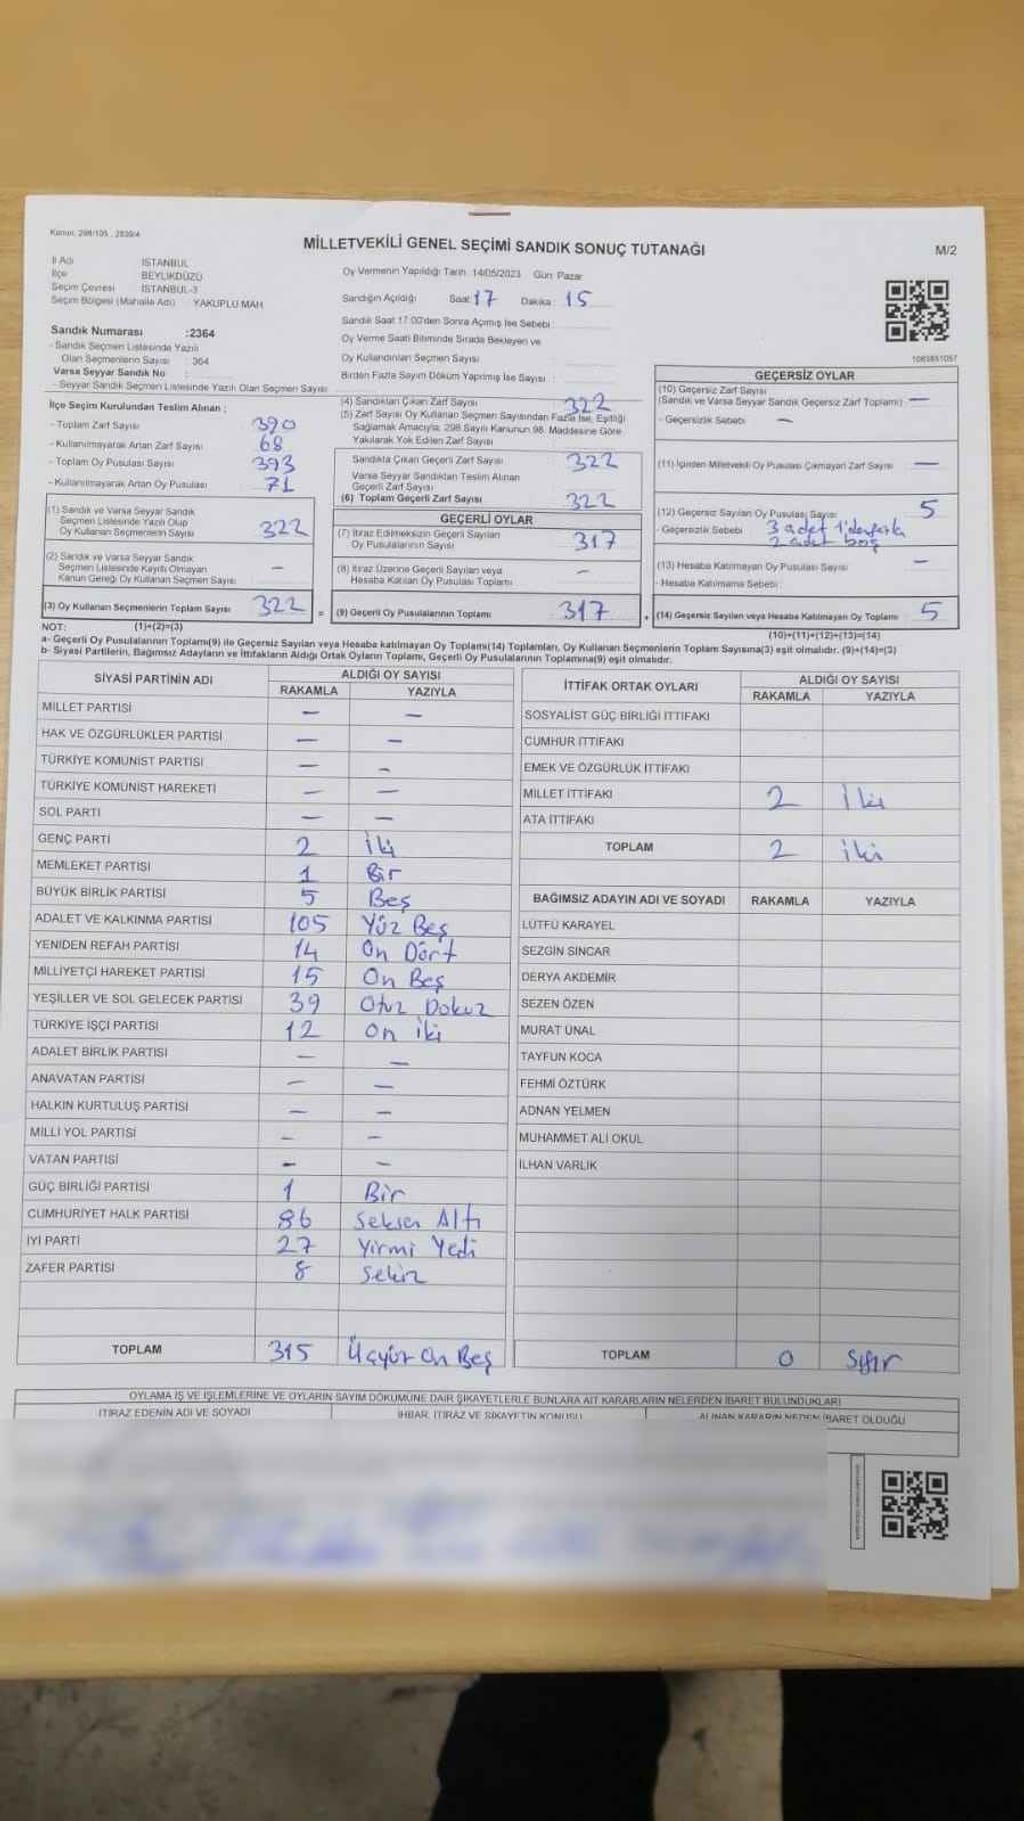 Kanun: 298/105 , 2839/4
MİLLETVEKİLİ GENEL SEÇİMİ SANDIK SONUÇ TUTANAĞI
M/2
İl Adı İSTANBUL
İlçe BEYLİKDÜZÜ
Seçim Çevresi İSTANBUL-3
Seçim Bölgesi (Mahalle Adı) YAKUPLU MAH
Oy Vermenin Yapıldığı Tarih 14/05/2023 Gün: Pazar
Sandığın Açıldığı Saat: 17 Dakika: 15
Sandık Saat 17:00'den Sonra Açımış İse Sebebi
Oy Verme Saati Bitiminde Sırada Bekleyen ve
Oy Kullandırılan Seçmen Sayısı
Birden Fazla Sayım Döküm Yapılmış İse Sayısı :
1083851057
Sandık Numarası :2364
- Sandık Seçmen Listesinde Yazılı
Olan Seçmenlerin Sayısı : 364
Varsa Seyyar Sandık No
- Seyyar Sandık Seçmen Listesinde Yazılı Olan Seçmen Sayısı
İlçe Seçim Kurulundan Teslim Alınan ;
- Toplam Zarf Sayısı 390
- Kullanılmayarak Artan Zarf Sayısı 68
- Toplam Oy Pusulası Sayısı 393
- Kullanılmayarak Artan Oy Pusulası 71
(1) Sandık ve Varsa Seyyar Sandık
Seçmen Listesinde Yazılı Olup
Oy Kullanan Seçmenlerin Sayısı 322
(2) Sandık ve Varsa Seyyar Sandık
Seçmen Listesinde Kayıtlı Olmayan
Kanun Gereği Oy Kullanan Seçmen Sayısı –
(3) Oy Kullanan Seçmenlerin Toplam Sayısı 322
(1)+(2)=(3)
(4) Sandıktan Çıkan Zarf Sayısı 322
(5) Zarf Sayısı Oy Kullanan Seçmen Sayısından Fazla İse, Eşitliği
Sağlamak Amacıyla, 298 Sayılı Kanunun 98. Maddesine Göre
Yakılarak Yok Edilen Zarf Sayısı
Sandıkta Çıkan Geçerli Zarf Sayısı 322
Varsa Seyyar Sandıktan Teslim Alınan
Geçerli Zarf Sayısı
(6) Toplam Geçerli Zarf Sayısı 322
GEÇERLİ OYLAR
(7) İtiraz Edilmeksizin Geçerli Sayılan
Oy Pusulalarının Sayısı 317
(8) İtiraz Üzerine Geçerli Sayılan veya
Hesaba Katılan Oy Pusulası Toplamı –
= (9) Geçerli Oy Pusulalarının Toplamı 317
GEÇERSİZ OYLAR
(10) Geçersiz Zarf Sayısı
(Sandık ve Varsa Seyyar Sandık Geçersiz Zarf Toplamı) –
- Geçersizlik Sebebi –
(11) İçinden Milletvekili Oy Pusulası Çıkmayan Zarf Sayısı –
(12) Geçersiz Sayılan Oy Pusulası Sayısı 5
- Geçersizlik Sebebi 3 adet 1'den fazla
2 adet boş
(13) Hesaba Katılmayan Oy Pusulası Sayısı –
- Hesaba Katılmama Sebebi
+ (14) Geçersiz Sayılan veya Hesaba Katılmayan Oy Toplamı 5
(10)+(11)+(12)+(13)=(14)
NOT:
a- Geçerli Oy Pusulalarının Toplamı(9) ile Geçersiz Sayılan veya Hesaba katılmayan Oy Toplamı(14) Toplamları, Oy Kullanan Seçmenlerin Toplam Sayısına(3) eşit olmalıdır. (9)+(14)=(3)
b- Siyasi Partilerin, Bağımsız Adayların ve İttifakların Aldığı Ortak Oyların Toplamı, Geçerli Oy Pusulalarının Toplamına(9) eşit olmalıdır.
SİYASİ PARTİNİN ADI ALDIĞI OY SAYISI
RAKAMLA YAZIYLA
MİLLET PARTİSİ – –
HAK VE ÖZGÜRLÜKLER PARTİSİ – –
TÜRKİYE KOMÜNİST PARTİSİ – –
TÜRKİYE KOMÜNİST HAREKETİ – –
SOL PARTİ – –
GENÇ PARTİ 2 İki
MEMLEKET PARTİSİ 1 Bir
BÜYÜK BİRLİK PARTİSİ 5 Beş
ADALET VE KALKINMA PARTİSİ 105 Yüz Beş
YENİDEN REFAH PARTİSİ 14 On Dört
MİLLİYETÇİ HAREKET PARTİSİ 15 On Beş
YEŞİLLER VE SOL GELECEK PARTİSİ 39 Otuz Dokuz
TÜRKİYE İŞÇİ PARTİSİ 12 On iki
ADALET BİRLİK PARTİSİ – –
ANAVATAN PARTİSİ – –
HALKIN KURTULUŞ PARTİSİ – –
MİLLİ YOL PARTİSİ – –
VATAN PARTİSİ – –
GÜÇ BİRLİĞİ PARTİSİ 1 Bir
CUMHURİYET HALK PARTİSİ 86 Seksen Altı
İYİ PARTİ 27 Yirmi Yedi
ZAFER PARTİSİ 8 Sekiz
TOPLAM 315 Üçyüz On Beş
İTTİFAK ORTAK OYLARI ALDIĞI OY SAYISI
RAKAMLA YAZIYLA
SOSYALİST GÜÇ BİRLİĞİ İTTİFAKI
CUMHUR İTTİFAKI
EMEK VE ÖZGÜRLÜK İTTİFAKI
MİLLET İTTİFAKI 2 İki
ATA İTTİFAKI
TOPLAM 2 iki
BAĞIMSIZ ADAYIN ADI VE SOYADI RAKAMLA YAZIYLA
LÜTFÜ KARAYEL
SEZGİN SİNCAR
DERYA AKDEMİR
SEZEN ÖZEN
MURAT ÜNAL
TAYFUN KOCA
FEHMİ ÖZTÜRK
ADNAN YELMEN
MUHAMMET ALİ OKUL
İLHAN VARLIK
TOPLAM 0 Sıfır
OYLAMA İŞ VE İŞLEMLERİNE VE OYLARIN SAYIM DÖKÜMÜNE DAİR ŞİKAYETLERLE BUNLARA AİT KARARLARIN NELERDEN İBARET BULUNDUKLARI
İTİRAZ EDENİN ADI VE SOYADI İHBAR, İTİRAZ VE ŞİKAYETİN KONUSU ALINAN KARARIN NEDEN İBARET OLDUĞU